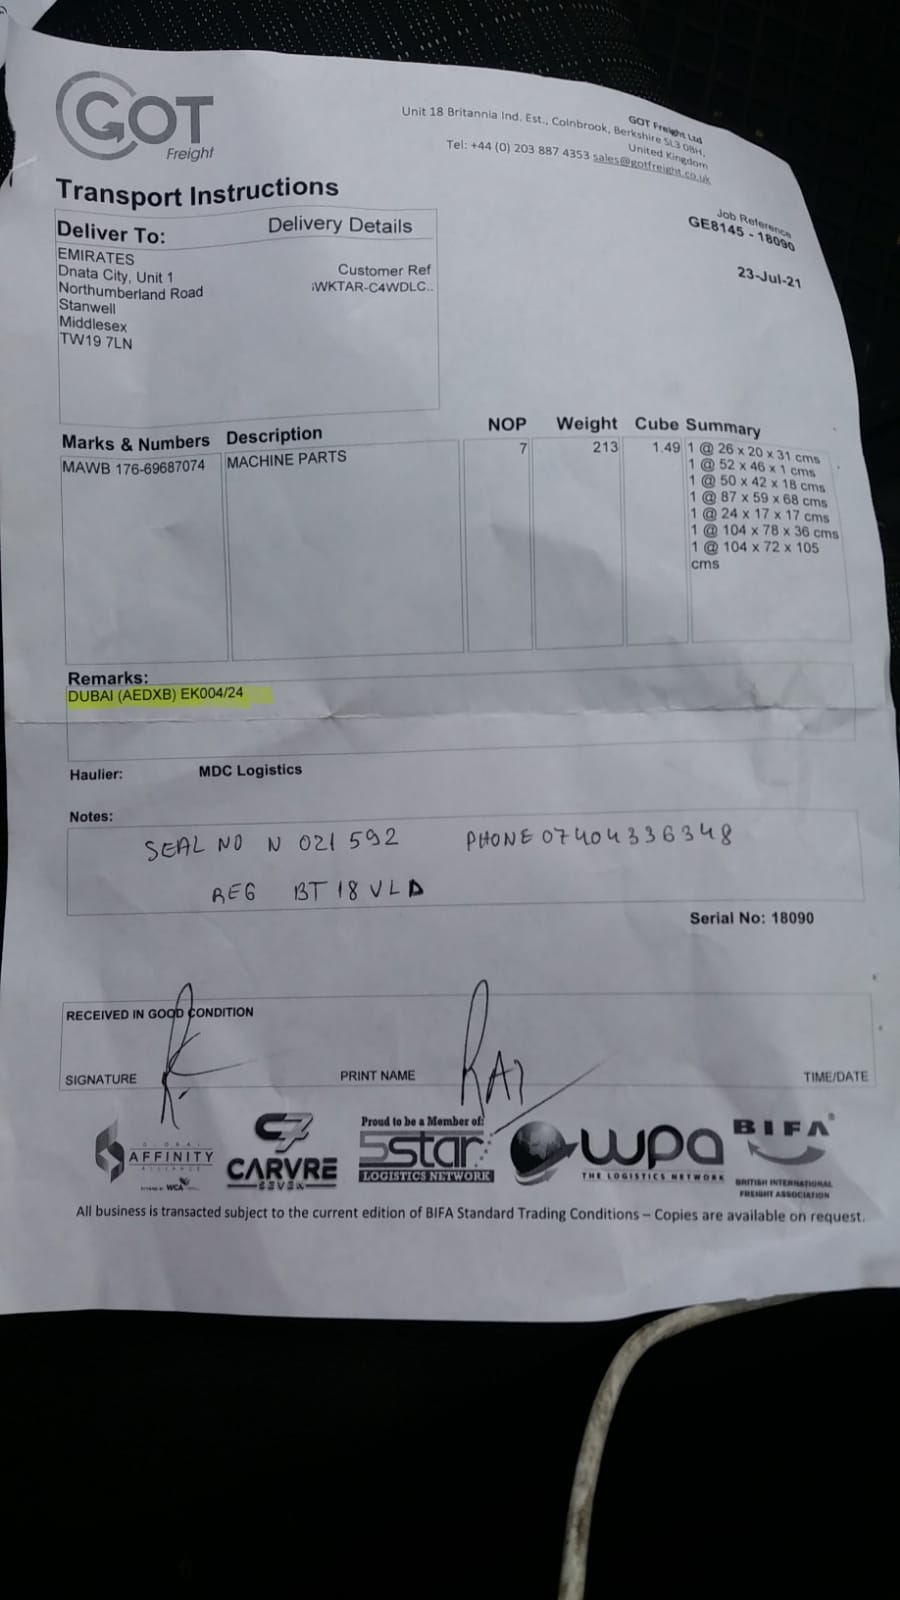 GOT
Freight
GOT Freight Ltd
Unit 18 Britannia Ind. Est., Colnbrook, Berkshire SL3 0BH,
United Kingdom
Tel: +44 (0) 203 887 4353 sales@gotfreight.co.uk
Transport Instructions
Job Reference
GE8145 - 18090
23-Jul-21
Deliver To:
Delivery Details
EMIRATES
Dnata City, Unit 1
Northumberland Road
Stanwell
Middlesex
TW19 7LN
Customer Ref
WKTAR-C4WDLC..
Marks & Numbers Description NOP Weight Cube Summary
MAWB 176-69687074 MACHINE PARTS 7 213 1.49 1 @ 26 x 20 x 31 cms
1 @ 52 x 46 x 1 cms
1 @ 50 x 42 x 18 cms
1 @ 87 x 59 x 68 cms
1 @ 24 x 17 x 17 cms
1 @ 104 x 78 x 36 cms
1 @ 104 x 72 x 105
cms
Remarks:
DUBAI (AEDXB) EK004/24
Haulier: MDC Logistics
Notes:
SEAL NO N 021592 PHONE 07404336348
REG BT18VLD
Serial No: 18090
RECEIVED IN GOOD CONDITION
SIGNATURE PRINT NAME RAJ TIME/DATE
GLOBAL
AFFINITY
ALLIANCE
WCA
C7
CARVRE
SEVEN
Proud to be a Member of:
5star
LOGISTICS NETWORK
wpa
THE LOGISTICS NETWORK
BIFA
BRITISH INTERNATIONAL
FREIGHT ASSOCIATION
All business is transacted subject to the current edition of BIFA Standard Trading Conditions – Copies are available on request.